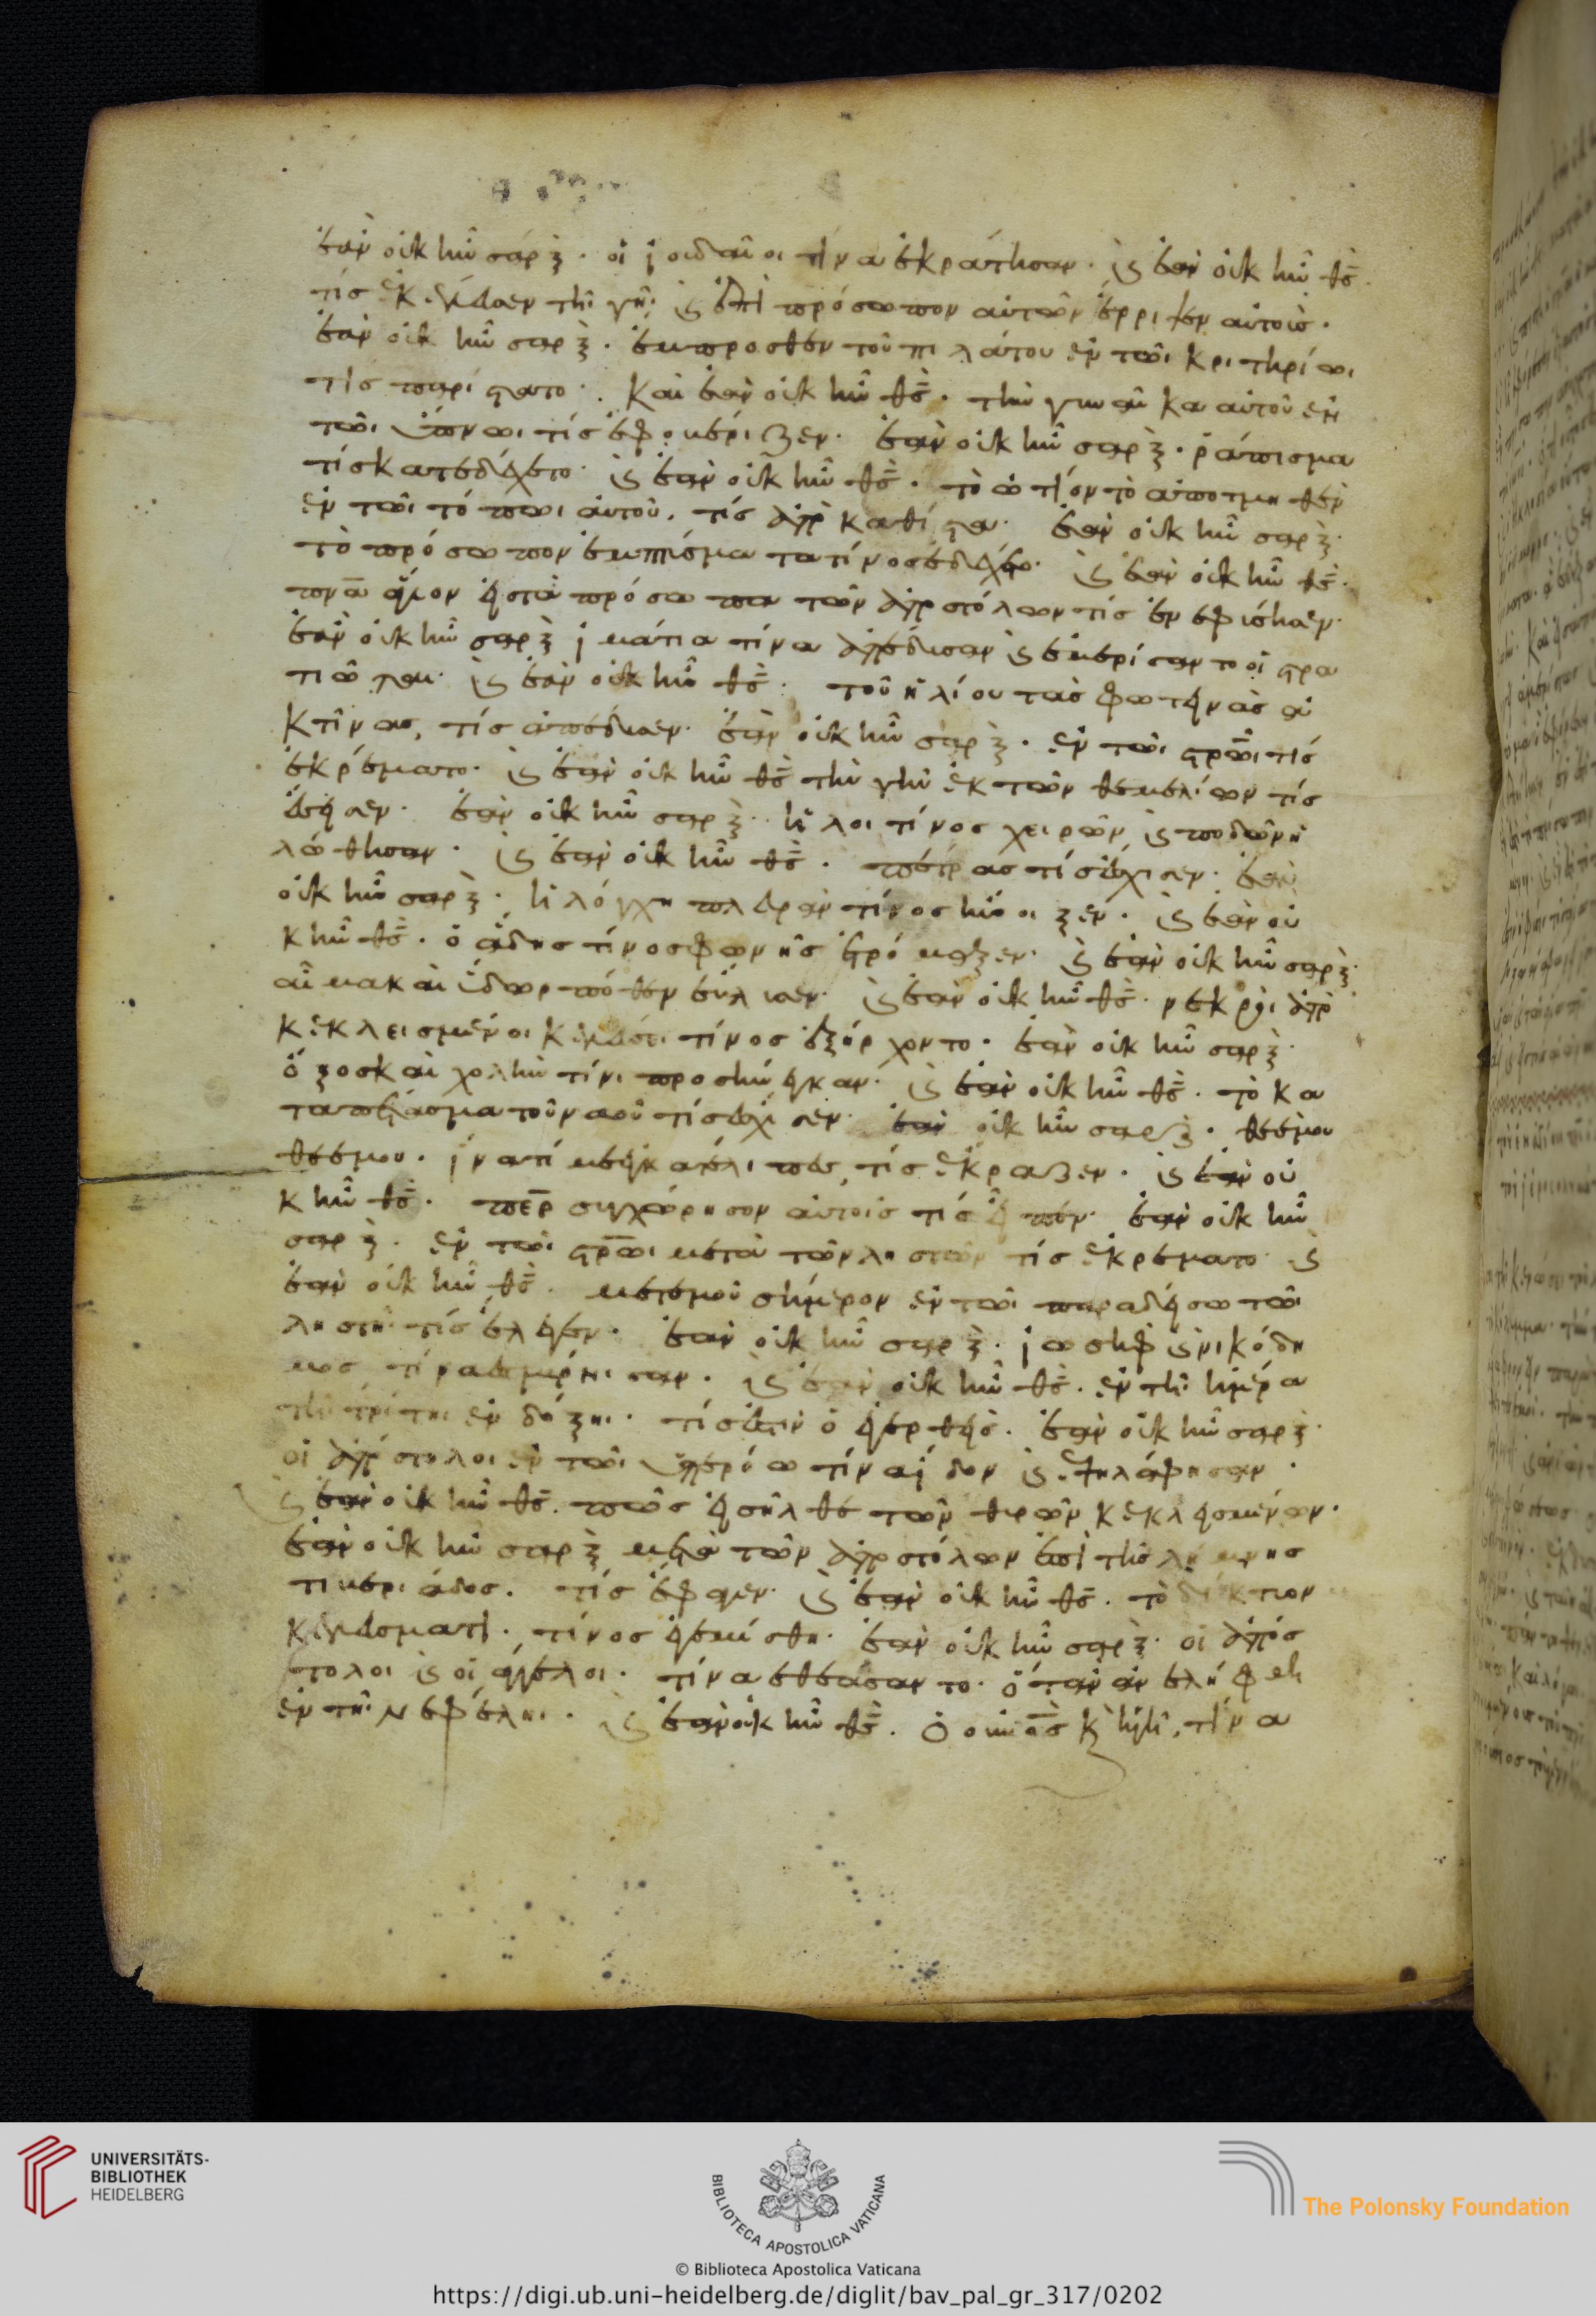 ἐὰν οὐκ ἦν σὰρξ· οἱ ἰουδαῖοι τίνα ἐκράτησαν· καὶ ἐὰν οὐκ ἦν θς̅
τίς ἐκέλευσεν τῆι γῆι καὶ ἐπὶ πρόσωπον αὐτῶν ἔρριψεν αὐτούς·
ἐὰν οὐκ ἦν σὰρξ· ἔμπροσθεν τοῦ πιλάτου ἐν τῶι κριτηρίωι
τίς παρίστατο· καὶ ἐὰν οὐκ ἦν θς̅· τὴν γυναῖκα αὐτοῦ ἐν
τῶι ὕπνωι τίς ἐφοβέριζεν· ἐὰν οὐκ ἦν σὰρξ· ῥάπισμα
τίς κατεδέχετο· καὶ ἐὰν οὐκ ἦν θς̅· τὸ ὠτίον τὸ ἀποτμηθὲν
ἐν τῶι τόπωι αὐτοῦ, τίς ἀπεκαθίστα· ἐὰν οὐκ ἦν σὰρξ·
τὸ πρόσωπον ἐμπτύσματα τίνος ἐδέχετο· καὶ ἐὰν οὐκ ἦν θς̅·
πνα̅ ἅγιον εἰς τὰ πρόσωπα τῶν ἀποστόλων τίς ἐνεφύσησεν·
ἐὰν οὐκ ἦν σὰρξ ἱμάτια τίνα ἀπέδυσαν καὶ ἐμέρισαν τὸ οἱ στρα
τιῶται· καὶ ἐὰν οὐκ ἦν θς̅· τοῦ ἡλίου τὰς φωτεινὰς ἀ
κτῖνας, τίς ἀπέδυσεν· ἐὰν οὐκ ἦν σὰρξ· ἐν τῶι στρω̅ι τίς
ἐκρέματο· καὶ ἐὰν οὐκ ἦν θς̅ τὴν γῆν ἐκ τῶν θεμελίων τίς
ἔσεισεν· ἐὰν οὐκ ἦν σὰρξ· ἧλοι τίνος χειρῶν καὶ ποδῶν ἡ
λώθησαν· καὶ ἐὰν οὐκ ἦν θς̅· πέτρας τίς ἔσχισεν· ἐὰν
οὐκ ἦν σὰρξ· ἡ λόγχη πλευρὰν τίνος ἤνοιξεν· καὶ ἐὰν οὐ
κ ἦν θς̅· ὁ ἅδης τίνος φωνῆς ἐτρόμαξεν· καὶ ἐὰν οὐκ ἦν σὰρξ·
αἷμα καὶ ὕδωρ πόθεν ἔβλυσεν· καὶ ἐὰν οὐκ ἦν θς̅· νεκροὶ ἀπο
κεκλεισμένοι κελεύσει τίνος ἐξήρχοντο· ἐὰν οὐκ ἦν σὰρξ·
ὄξος καὶ χολὴν τίνι προσήνεγκαν· καὶ ἐὰν οὐκ ἦν θς̅· τὸ κα
ταπέτασμα τοῦ ναοῦ τίς ἔσχισεν· ἐὰν οὐκ ἦν σὰρξ· θεέμου
θεέμου· ἵνατί με ἐγκατέλιπες, τίς ἔκραζεν· καὶ ἐὰν οὐ
κ ἦν θς̅· περ̅ συγχώρησον αὐτοῖς τίς εἶπεν· ἐὰν οὐκ ἦν
σὰρξ· ἐν τῶι στρω̅ι μετὰ τῶν ληστῶν τίς ἐκρέματο· καὶ
ἐὰν οὐκ ἦν θς̅· μετεμοῦ σήμερον ἐν τῶι παραδείσω τῶι
ληστῆι τίς ἔλεγεν· ἐὰν οὐκ ἦν σὰρξ· ἰωσὴφ καὶ νικόδη
μος τίνα ἐμύρησαν· καὶ ἐὰν οὐκ ἦν θς̅· ἐν τῆι ἡμέρα
τῆι τρίτηι ἐν δόξηι· τίς ἐστιν ὁ ἐγερθείς· ἐὰν οὐκ ἦν σὰρξ·
οἱ ἀπόστολοι ἐν τῶι ὑπερώω τίνα ἴδον καὶ ἐψηλάφησαν·
καὶ ἐὰν οὐκ ἦν θς̅· πῶς εἰσῆλθε τῶν θυρῶν κεκλεισμένων·
ἐὰν οὐκ ἦν σὰρξ μετὰ τῶν ἀποστόλων ἐπὶ τῆς λίμνης
τιβεριάδος· τίς ἔφαγεν· καὶ ἐὰν οὐκ ἦν θς̅· τὸ δίκτυον
κελεύσματι· τίνος ἐγεμίσθη· ἐὰν οὐκ ἦν σὰρξ· οἱ ἀπόσ
τολοι καὶ οἱ ἄγγελοι· τίνα ἐθεάσαντο· ὅταν ἀνελήφθη
ἐν τῆι νεφέληι· καὶ ἐὰν οὐκ ἦν θς̅· ὁ οὐνο̅ς καὶ ἡ γῆ, τίνα
UNIVERSITÄTS-
BIBLIOTHEK
HEIDELBERG
BIBLIOTECA APOSTOLICA VATICANA
The Polonsky Foundation
© Biblioteca Apostolica Vaticana
https://digi.ub.uni-heidelberg.de/diglit/bav_pal_gr_317/0202